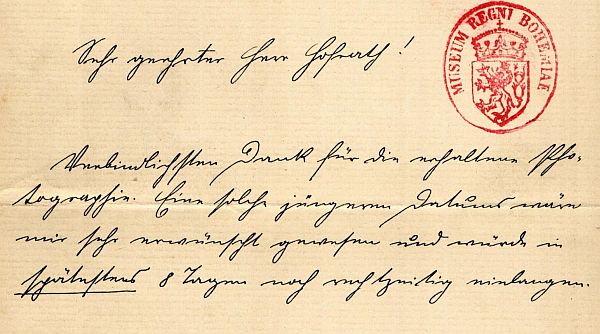 MUSEUM REGNI BOHEMIAE
Sehr geehrter Herr Hofrath!
Verbindlichsten Dank für die erhaltene Pho-
tographie. Eine solche jüngeren Datums wäre
mir sehr erwünscht gewesen und würde in
spätestens 8 Tagen noch rechtzeitig einlangen.